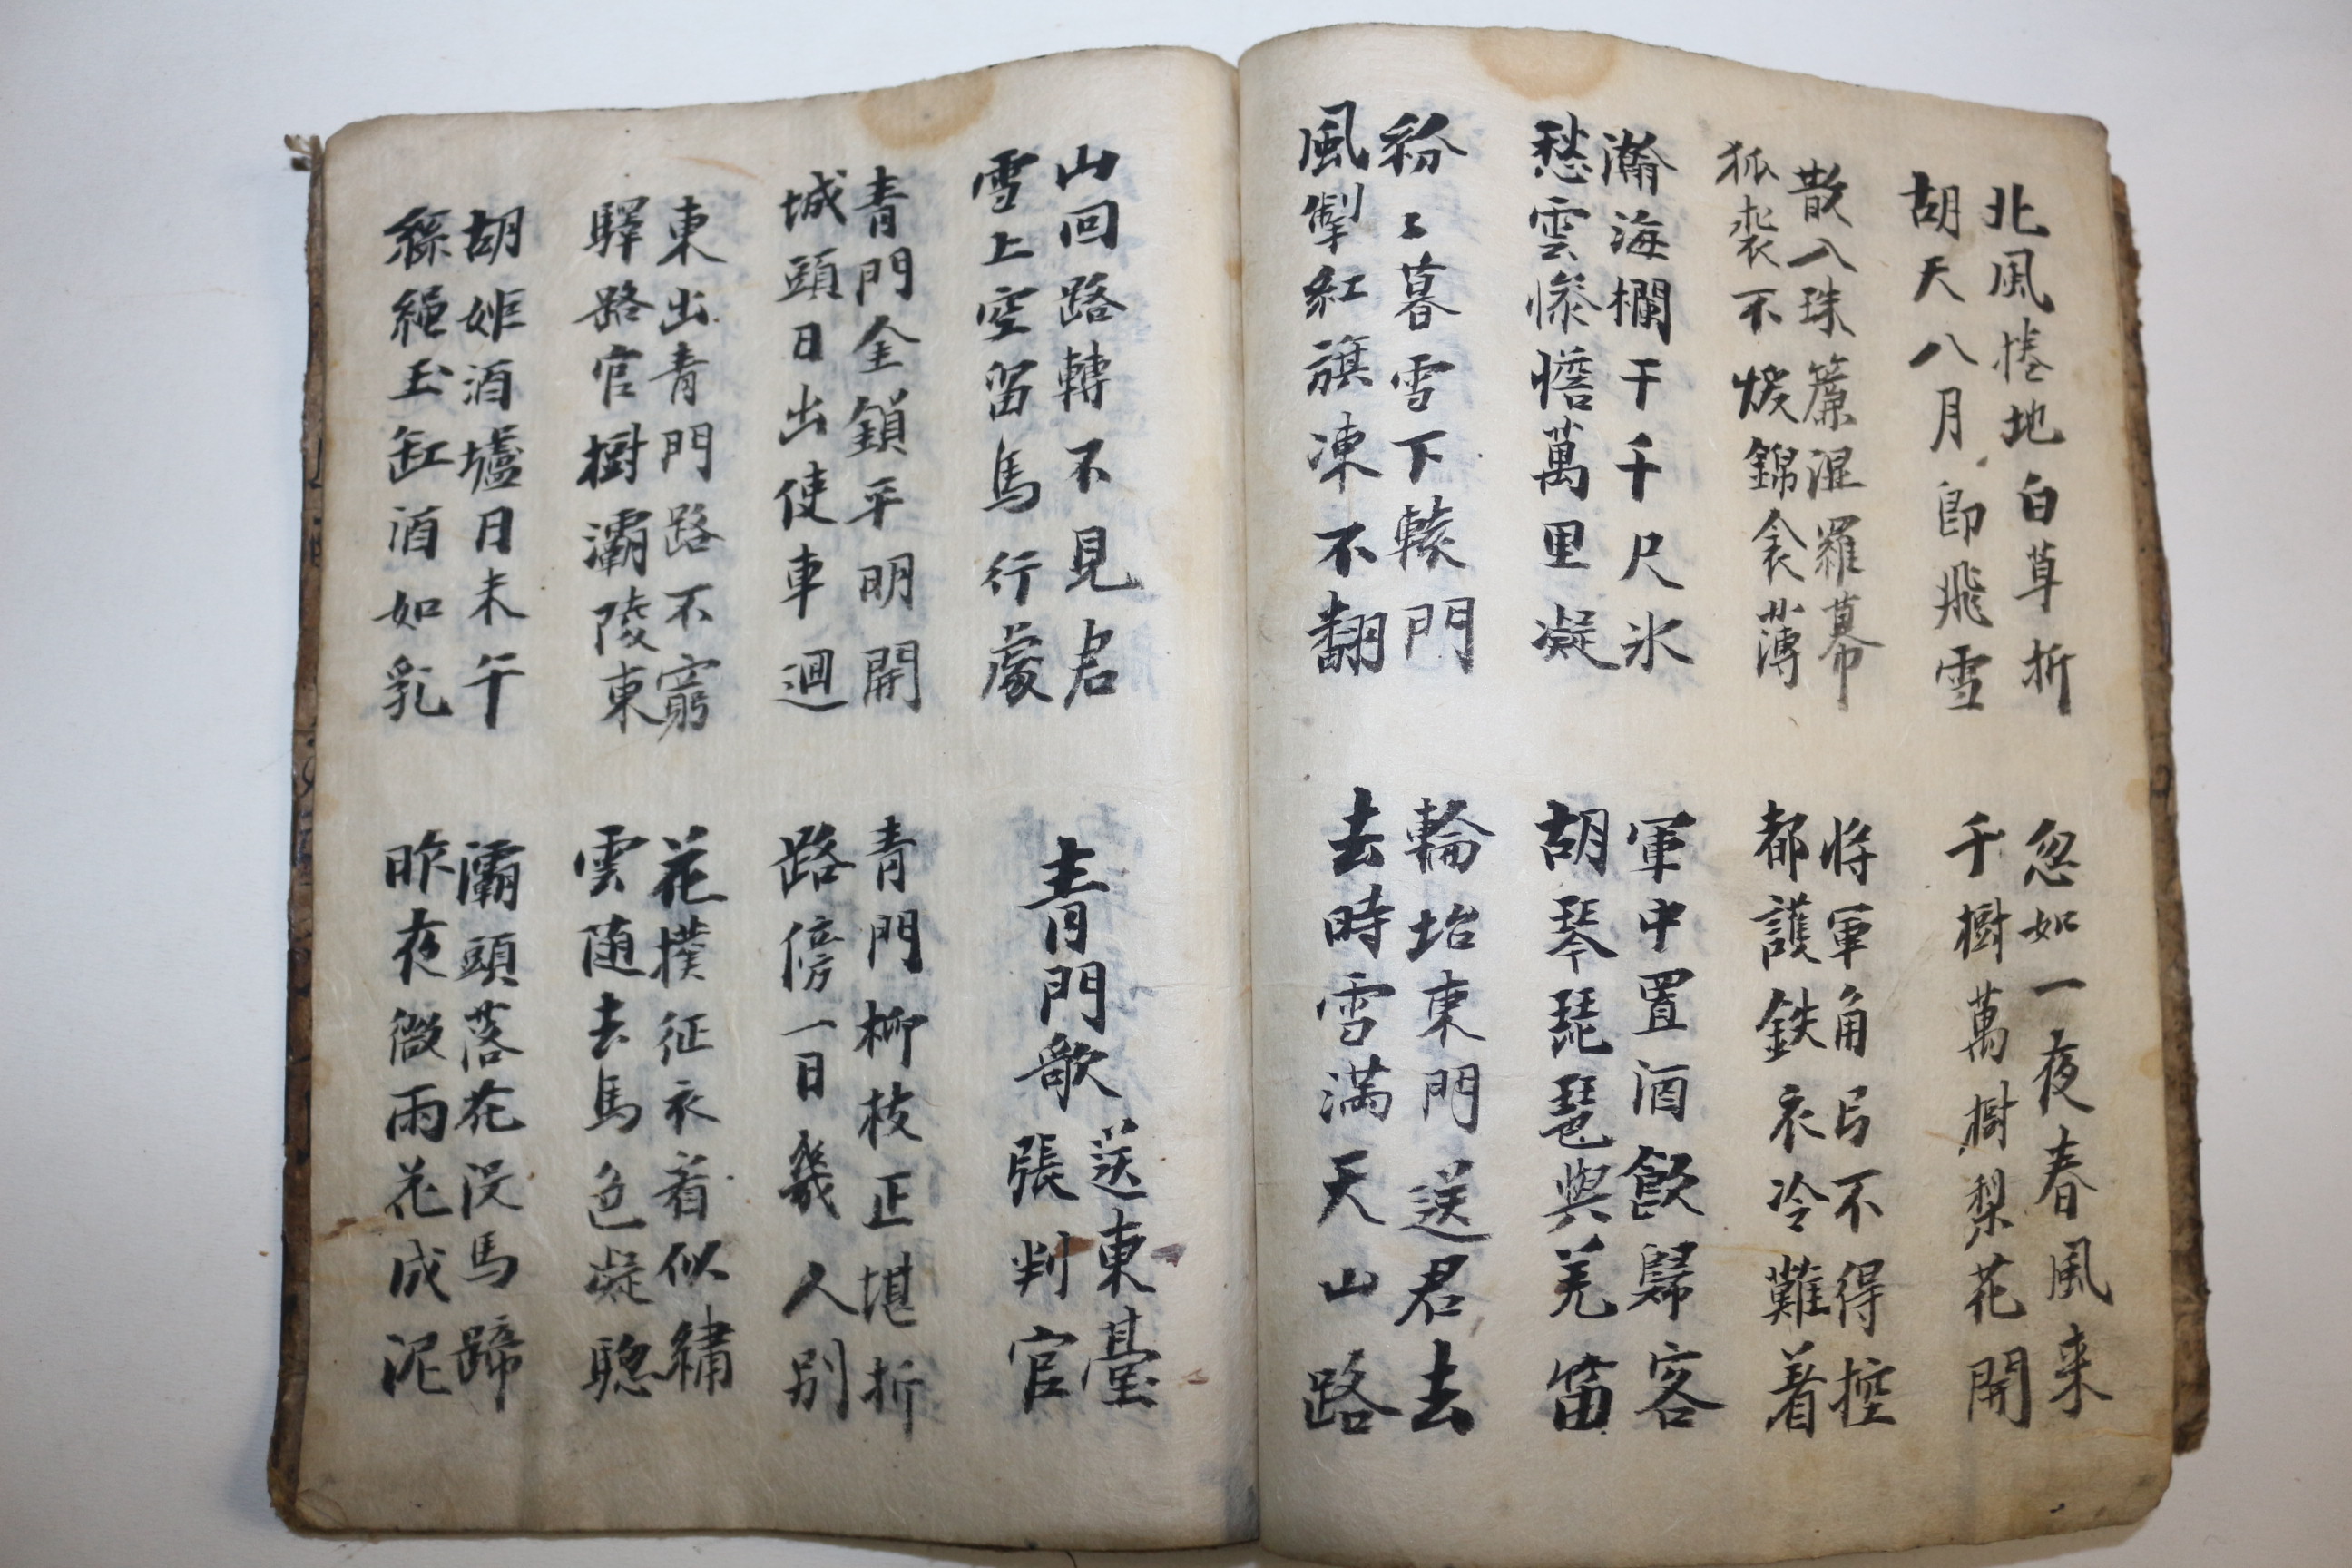 北風捲地白草折
胡天八月即飛雪
忽如一夜春風来
千樹萬樹梨花開
散入珠簾濕羅幕
狐裘不煖錦衾薄
将軍角弓不得控
都護鉄衣冷難着
瀚海欄干千尺氷
愁雲慘憺萬里凝
軍中置酒飲歸客
胡琴琵琶與羌笛
紛〻暮雪下轅門
風掣紅旗凍不翻
輪坮東門送君去
去時雪満天山路
山回路轉不見君
雪上空留馬行處
青門歌
送東臺
張判官
青門金鎖平明開
城頭日出使車迴
青門柳枝正堪折
路傍一日幾人別
東出青門路不窮
驛路官樹灞陵東
花撲征衣看似繡
雲随去馬色凝驄
胡姬酒壚日未午
絲繩玉缸酒如乳
灞頭落花没馬蹄
昨夜微雨花成泥